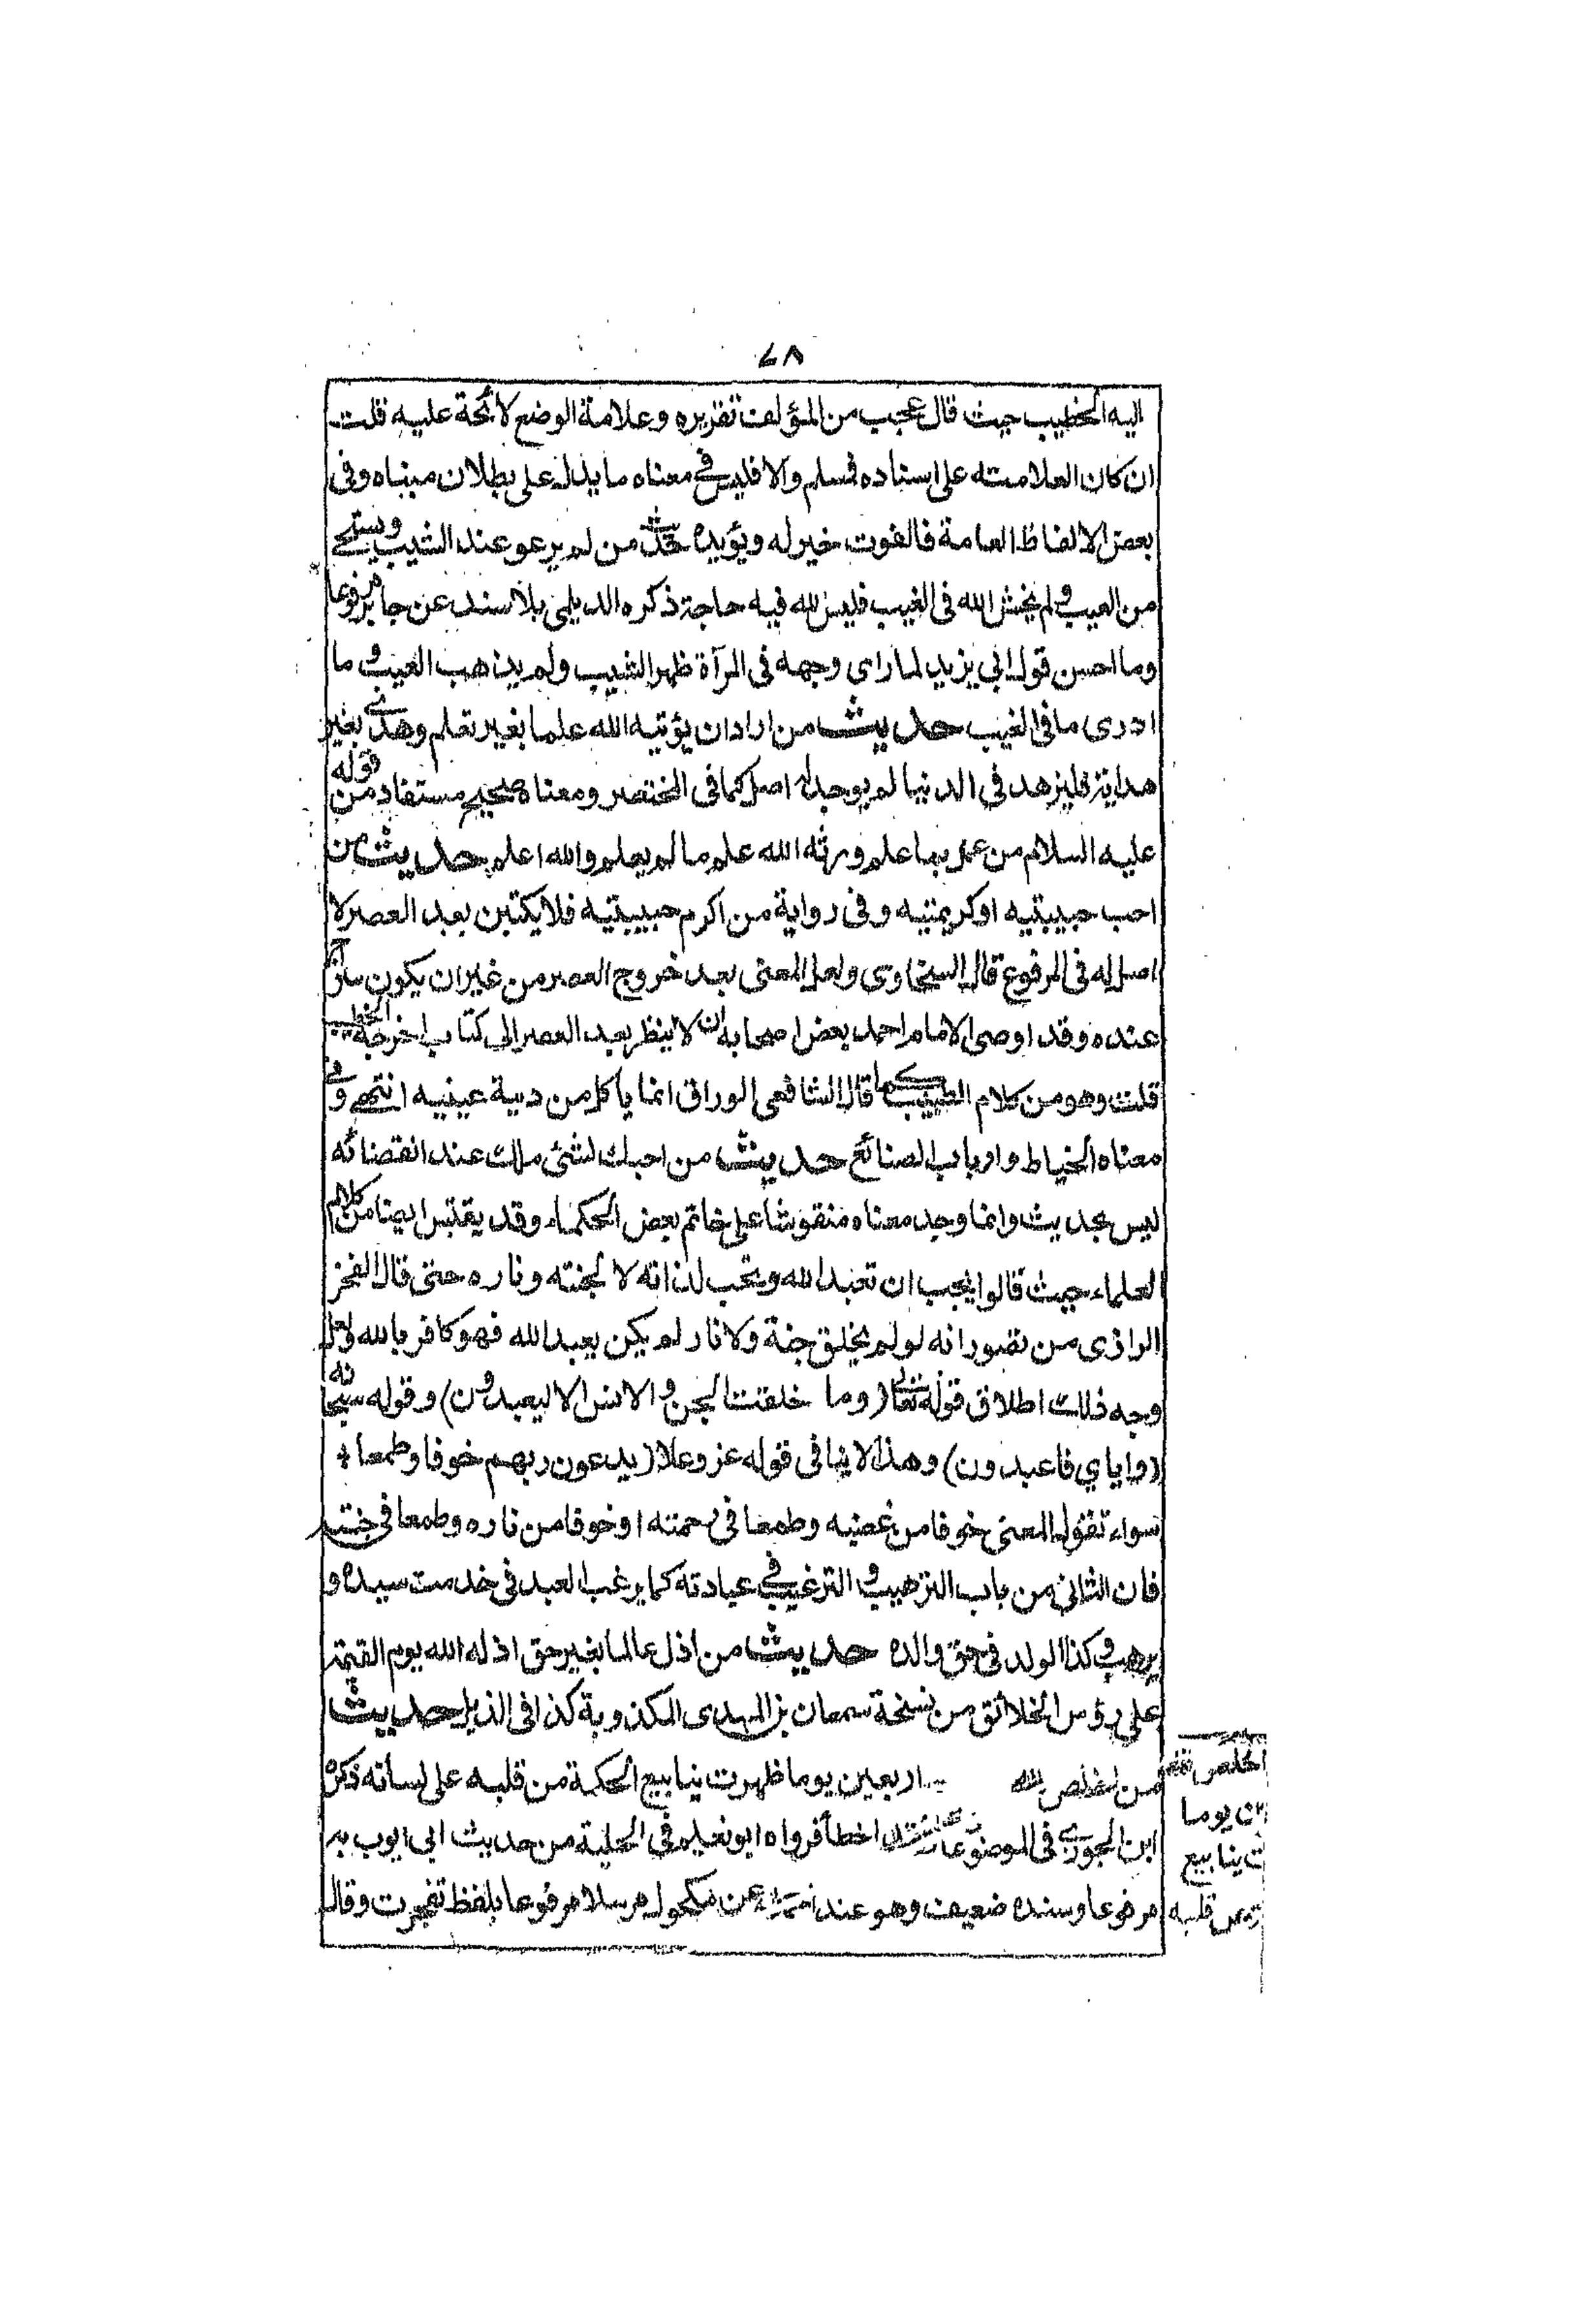 ٧٨
اليه الخطيب حيث قال عجب من المؤلف تقريره وعلامة الوضع لائحة عليه قلت
ان كان العلامته على اسناده فمسلم والا فليس في معناه ما يدل على بطلان مبناه وفى
بعض الالفاظ العامة فالفوت خير له ويؤيده حديث من لم يرعو عند الشيب ويستحي
من العيب ولم يخش الله فى الغيب فليس لله فيه حاجة ذكره الديلمى بلا سند عن جابر مرفوعا
وما احسن قول ابي يزيد لما راى وجهه فى المرآة ظهر الشيب ولم يذهب العيب وما
ادرى ما فى الغيب حديث من اراد ان يؤتيه الله علما بغير تعلم وهدى بغير
هداية فليزهد فى الدنيا لم يوجد له اصل كما فى المختصر ومعناه صحيح مستفاد من قوله
عليه السلام من عمل بما علم ورثه الله علم ما لم يعلم والله اعلم حديث من
احب حبيبتيه او كريمتيه وفى رواية من اكرم حبيبتيه فلا يكتبن بعد العصر لا
اصل له فى المرفوع قال السخاوى ولعل المعنى بعد خروج العصر من غير ان يكون سراج
عنده وقد اوصى الامام احمد بعض اصحابه ان لا ينظر بعد العصر الى كتاب اخرجه الخطيب
قلت وهو من كلام الطبيب كما قال الشافعى الوراق انما ياكل من دية عينيه انتهى وفي
معناه الخياط وارباب الصنائع حديث من احبك لشئ ملك عند انقضائه
ليس بحديث وانما وجد معناه منقوشا على خاتم بعض الحكماء وقد يقتبس ايضا من كلام
العلماء حيث قالوا يجب ان تعبد الله وتحب لذاته لا لجنته وناره حتى قال الفخر
الرازى من تصور انه لو لم يخلق جنة ولا نار لم يكن يعبد الله فهو كافر بالله ولعل
وجه ذلك اطلاق قوله تعالى (وما خلقت الجن والانس الا ليعبدون) وقوله سبحانه
(واياي فاعبدون) وهذا لا ينافى قوله عز وعلا (يدعون ربهم خوفا وطمعا)
سواء تقول المعنى خوفا من غضبه وطمعا فى رحمته او خوفا من ناره وطمعا فى جنته
فان الثانى من باب الترهيب والترغيب في عبادته كما يرغب العبد فى خدمت سيده و
يرهب وكذا الولد فى حق والده حديث من اذل عالما بغير حق اذله الله يوم القيمة
على رؤس الخلائق من نسخة سمعان بن المهدى المكذوبة كذا فى الذيل حديث
من اخلص لله اربعين يوما ظهرت ينابيع الحكمة من قلبه على لسانه ذكره
ابن الجوزي فى الموضوعات اخطأ فرواه ابو نعيم فى الحلية من حديث ابى ايوب به
مرفوعا وسنده ضعيف وهو عند احمد عن مكحول مرسلا مرفوعا بلفظ تفجرت وقال
اخلص لله
ين يوما
ت ينابيع
من قلبه